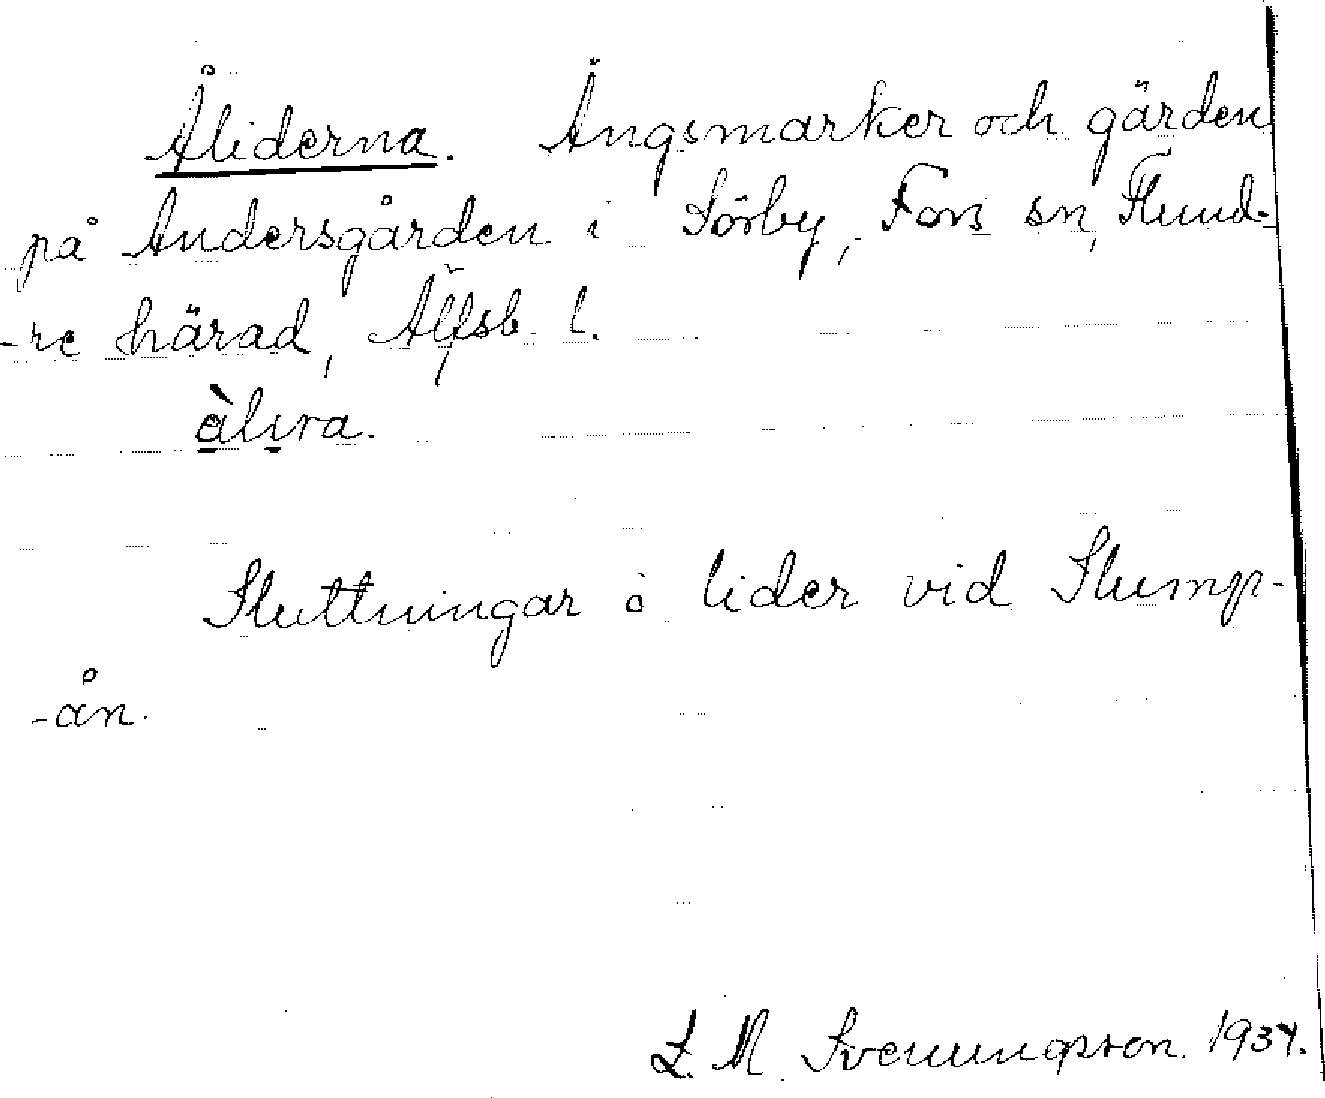 Åliderna. Ängsmarker och gärden
på Andersgården i Sörby, Fors sn, Flund-
-re härad, Älfsb. l.
àlira.
Sluttningar å lider vid Slump-
-ån.
L. M. Svenungsson. 1934.